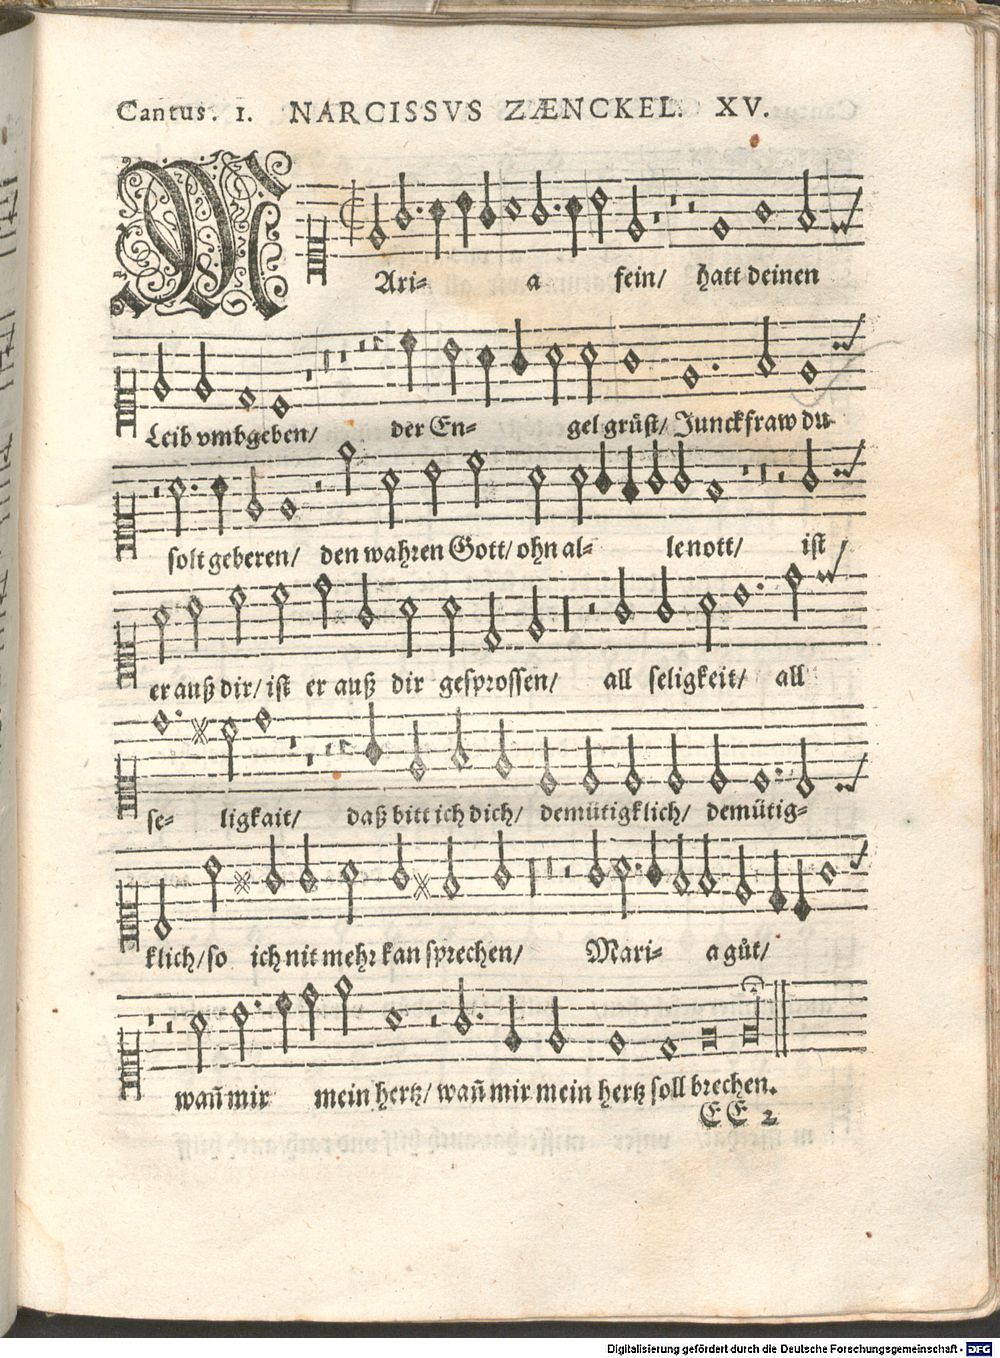 Cantus. 1. NARCISSVS ZÆNCKEL. XV.
MAri- a fein/ hatt deinen
Leib vmbgeben/ der En- gel grüst/ Junckfraw du
solt geberen/ den wahren Gott/ ohn al- le nott/ ist
er auß dir/ ist er auß dir gesprossen/ all seligkeit/ all
se- ligkait/ daß bitt ich dich/ demütigklich/ demütig-
klich/ so ich nit mehr kan sprechen/ Mari- a gůt/
wañ mir mein hertz/ wañ mir mein hertz soll brechen.
EE 2
Digitalisierung gefördert durch die Deutsche Forschungsgemeinschaft - DFG